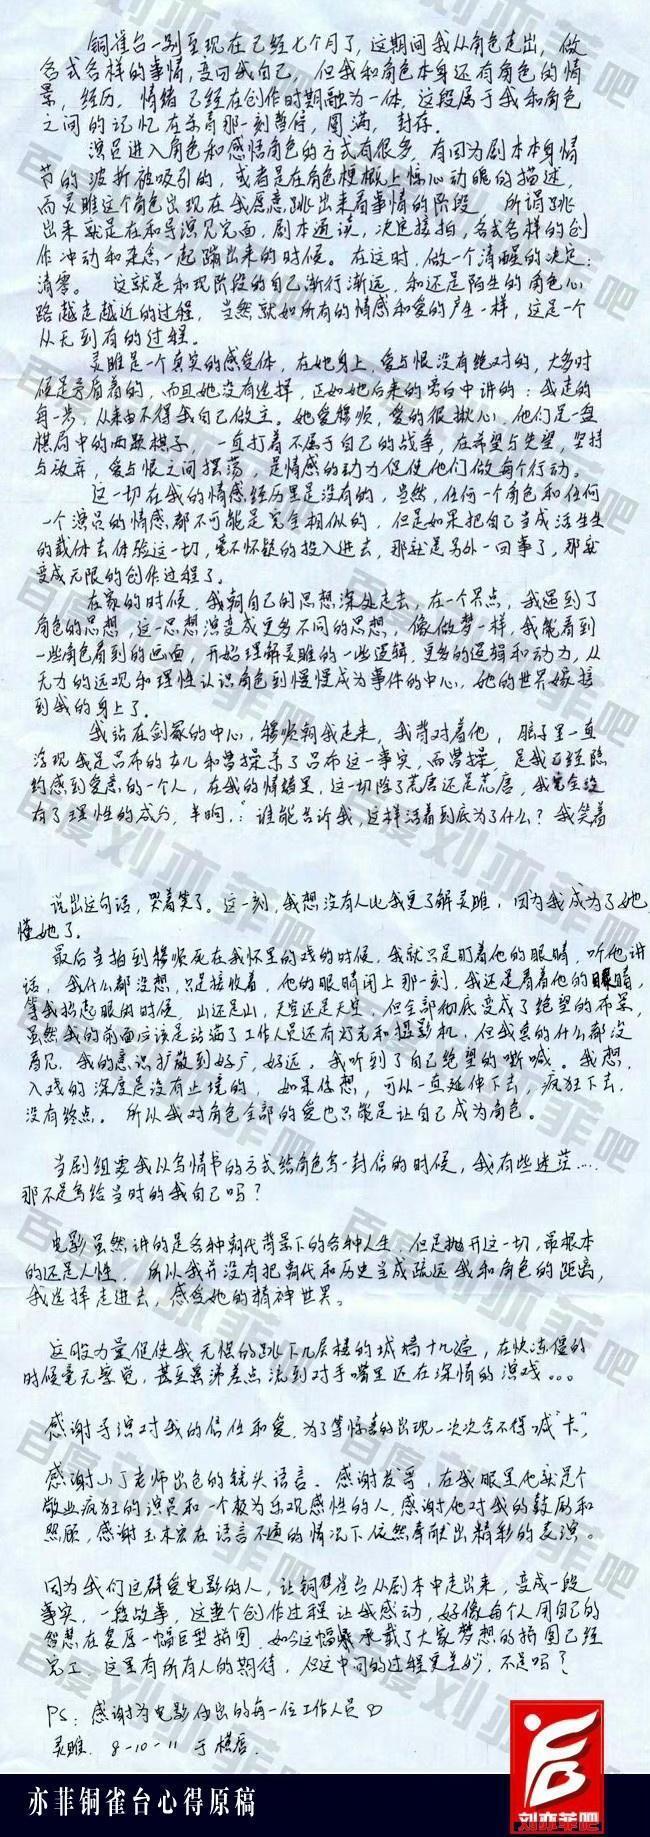 铜雀台一别至现在已经七个月了,这期间我从角色走出,做
各式各样的事情,变回我自己,但我和角色本身还有角色的情
景,经历,情绪已经在创作时期融为一体,这段属于我和角色
之间的记忆在杀青那一刻暂停,圆满,封存。
演员进入角色和感悟角色的方式有很多,有因为剧本本身情
节的波折被吸引的,或者是在角色梗概上惊心动魄的描述,
而灵雎这个角色出现在我愿意跳出来看事情的阶段 所谓跳
出来就是在和导演见完面,剧本通读,决定接拍,各式各样的创
作冲动和杂念一起蹦出来的时候。在这时,做一个清醒的决定:
清零。 这就是和现阶段的自己渐行渐远,和还是陌生的角色心
路越走越近的过程,当然就如所有的情感和爱的产生一样,这是一个
从无到有的过程。
灵雎是一个真实的感受体,在她身上,爱与恨没有绝对的,大多时
候是矛盾着的,而且她没有选择,正如她后来的旁白中讲的:我走的
每一步,从来由不得我自己做主。她爱穆顺,爱的很揪心,他们是一盘
棋局中的两颗棋子 一直打着不属于自己的战争,在希望与失望,坚持
与放弃,爱与恨之间摆荡,是情感的动力促使他们做每个行动。
这一切在我的情感经历里是没有的,当然,任何一个角色和任何
一个演员的情感都不可能是完全相似的,但是如果把自己当成活生生
的载体去体验这一切,毫不怀疑的投入进去,那就是另外一回事了,那就
变成无限的创作过程了。
在家的时候,我朝自己的思想深处走去,在一个界点,我遇到了
角色的思想,这一思想演变成更多不同的思想,像做梦一样,我能看到
一些角色看到的画面 开始理解灵雎的一些逻辑,更多的逻辑和动力,从
无力的远观和理性认识角色到慢慢成为事件的中心,她的世界嫁接
到我的身上了。
我站在剑冢的中心,穆顺朝我走来,我背对着他,脑子里一直
浮现我是吕布的女儿和曹操杀了吕布这一事实,而曹操,是我已经隐
约感到爱意的一个人,在我的情绪里,这一切除了荒唐还是荒唐,我完全没
有了理性的成分,半晌,:谁能告诉我,这样活着到底为了什么?我笑着
说出这句话,哭着笑了。这一刻,我想没有人比我更了解灵雎,因为我成为了她,
懂她了。
最后当拍到穆顺死在我怀里的戏的时候,我就只是盯着他的眼睛,听他讲
话,我什么都没想,只是接收着,他的眼睛闭上那一刻,我还是看着他的眼睛,
等我抬起眼的时候,山还是山,天空还是天空,但全部彻底变成了绝望的布景,
虽然我的前面应该是站满了工作人员还有灯光和摄影机,但我真的什么都没
看见,我的意识扩散到好广,好远,我听到了自己绝望的嘶喊。我想,
入戏的深度是没有止境的,如果你想,可以一直延伸下去,疯狂下去,
没有终点。所以我对角色全部的爱也只能是让自己成为角色。
当剧组要我以写情书的方式给角色写一封信的时候,我有些迷茫....
那不是写给当时的我自己吗?
电影虽然讲的是各种朝代背景下的各种人生,但是抛开这一切,最根本
的还是人性,所以我并没有把朝代和历史当成疏远我和角色的距离,
我选择走进去,感受她的精神世界。
这股力量促使我无惧的跳下几层楼的城墙十几遍,在快冻僵的
时候毫无察觉,甚至鼻涕差点流到对手嘴里还在深情的演戏。。。
感谢导演对我的信任和爱,为了等惊喜的出现一次次舍不得喊"卡",
感谢小丁老师出色的镜头语言。感谢发哥,在我眼里他就是个
敬业疯狂的演员和一个极为乐观感性的人,感谢他对我的鼓励和
照顾,感谢玉木宏在语言不通的情况下依然奉献出精彩的表演。
因为我们这群爱电影的人,让铜雀台从剧本中走出来,变成一段
事实,一段故事,这整个创作过程让我感动,好像每个人用自己的
智慧在复原一幅巨型拼图,如今这幅承载了大家梦想的拼图已经
完工,这里有所有人的期待,但这中间的过程更美妙,不是吗?
PS:感谢为电影付出的每一位工作人员
灵雎. 8-10-11 于横店.
亦菲铜雀台心得原稿
刘亦菲吧
百度刘亦菲吧